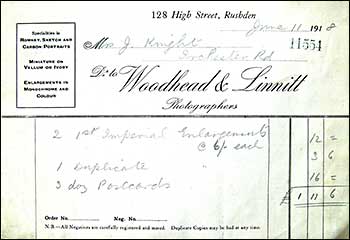 128 High Street, Rushden
Specialities in
BROMIDE, SKETCH AND
CARBON PORTRAITS
MINIATURE ON
VELLUM OR IVORY
ENLARGEMENTS IN
MONOCHROME AND
COLOUR
June 11 1918
Mrs J. Knight 11554
Irchester Rd
Dr. to Woodhead & Linnitt
Photographers
2 1st Imperial Enlargements 12 =
@ 6/- each
1 Duplicate 3 6
3 doz Postcards 16 =
£ 1 11 6
Order No. Neg. No.
N.B.—All Negatives are carefully registered and stored. Duplicate Copies may be had at any time.